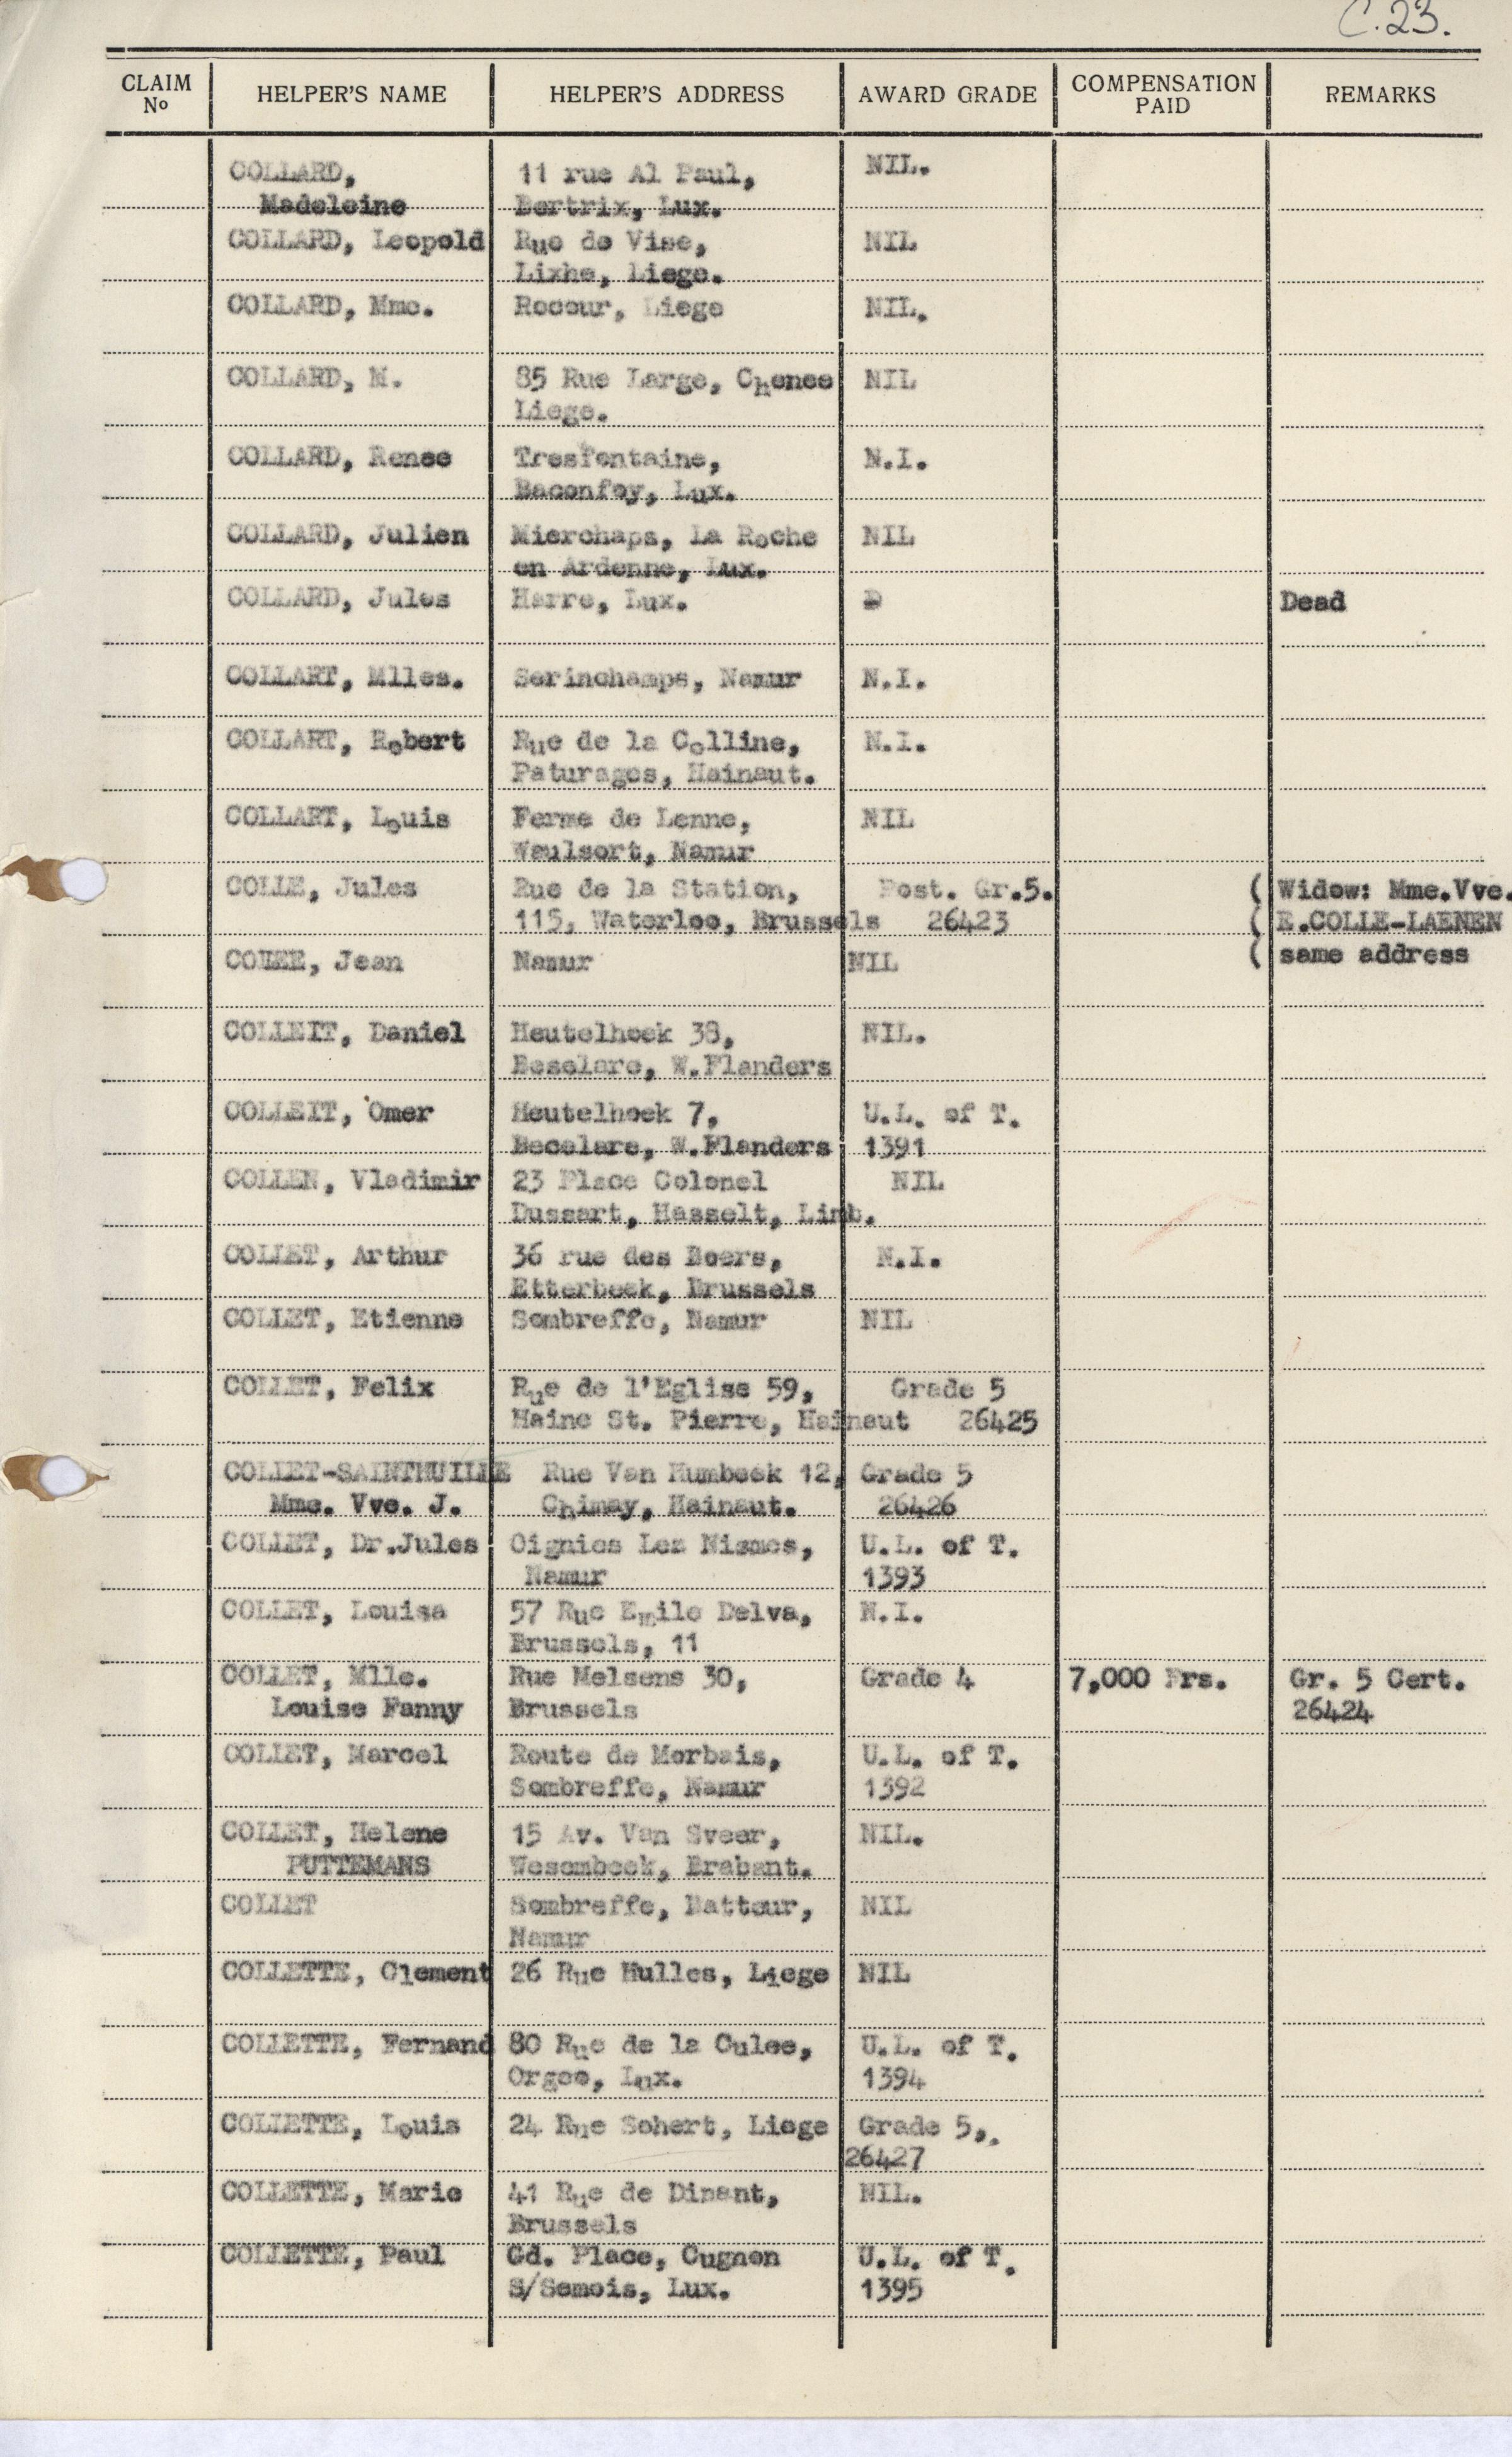 C.23.
CLAIM No HELPER'S NAME HELPER'S ADDRESS AWARD GRADE COMPENSATION PAID REMARKS
COLLARD, 11 rue Al Paul, NIL.
Madeleine Bertrix, Lux.
COLLARD, Leopold Rue de Vise, NIL
Lixhe, Liege.
COLLARD, Mme. Rocour, Liege NIL.
COLLARD, M. 85 Rue Large, Chenee NIL
Liege.
COLLARD, Renee Tresfontaine, N.I.
Baconfoy, Lux.
COLLARD, Julien Mierchaps, La Roche NIL
en Ardenne, Lux.
COLLARD, Jules Harre, Lux. D Dead
COLLART, Mlles. Serinchamps, Namur N.I.
COLLART, Robert Rue de la Colline, N.I.
Paturages, Hainaut.
COLLART, Louis Ferme de Lenne, NIL
Waulsort, Namur
COLLE, Jules Rue de la Station, Post. Gr.5. ( Widow: Mme.Vve.
115, Waterloo, Brussels 26423 ( E.COLLE-LAENEN
COLEE, Jean Namur NIL ( same address
COLLEIT, Daniel Heutelhoek 38, NIL.
Beselare, W.Flanders
COLLEIT, Omer Heutelhoek 7, U.L. of T.
Becelare, W.Flanders 1391
COLLEN, Vladimir 23 Place Colonel NIL
Dussart, Hasselt, Limb.
COLLET, Arthur 36 rue des Boers, N.I.
Etterbeek, Brussels
COLLET, Etienne Sombreffe, Namur NIL
COLLET, Felix Rue de l'Eglise 59, Grade 5
Haine St. Pierre, Hainaut 26425
COLLET-SAINTHUILLE Rue Van Humbeek 12, Grade 5
Mme. Vve. J. Chimay, Hainaut. 26426
COLLET, Dr.Jules Oignies Lez Nismes, U.L. of T.
Namur 1393
COLLET, Louisa 57 Rue Emile Delva, N.I.
Brussels, 11
COLLET, Mlle. Rue Melsens 30, Grade 4 7,000 Frs. Gr. 5 Cert.
Louise Fanny Brussels 26424
COLLET, Marcel Route de Morbais, U.L. of T.
Sombreffe, Namur 1392
COLLET, Helene 15 Av. Van Sveer, NIL.
PUTTEMANS Wesembeek, Brabant.
COLLET Sombreffe, Battour, NIL
Namur
COLLETTE, Clement 26 Rue Hulles, Liege NIL
COLLETTE, Fernand 80 Rue de la Culee, U.L. of T.
Orgeo, Lux. 1394
COLLETTE, Louis 24 Rue Sohert, Liege Grade 5,.
26427
COLLETTE, Marie 41 Rue de Dinant, NIL.
Brussels
COLLETTE, Paul Gd. Place, Cugnon U.L. of T.
S/Semois, Lux. 1395